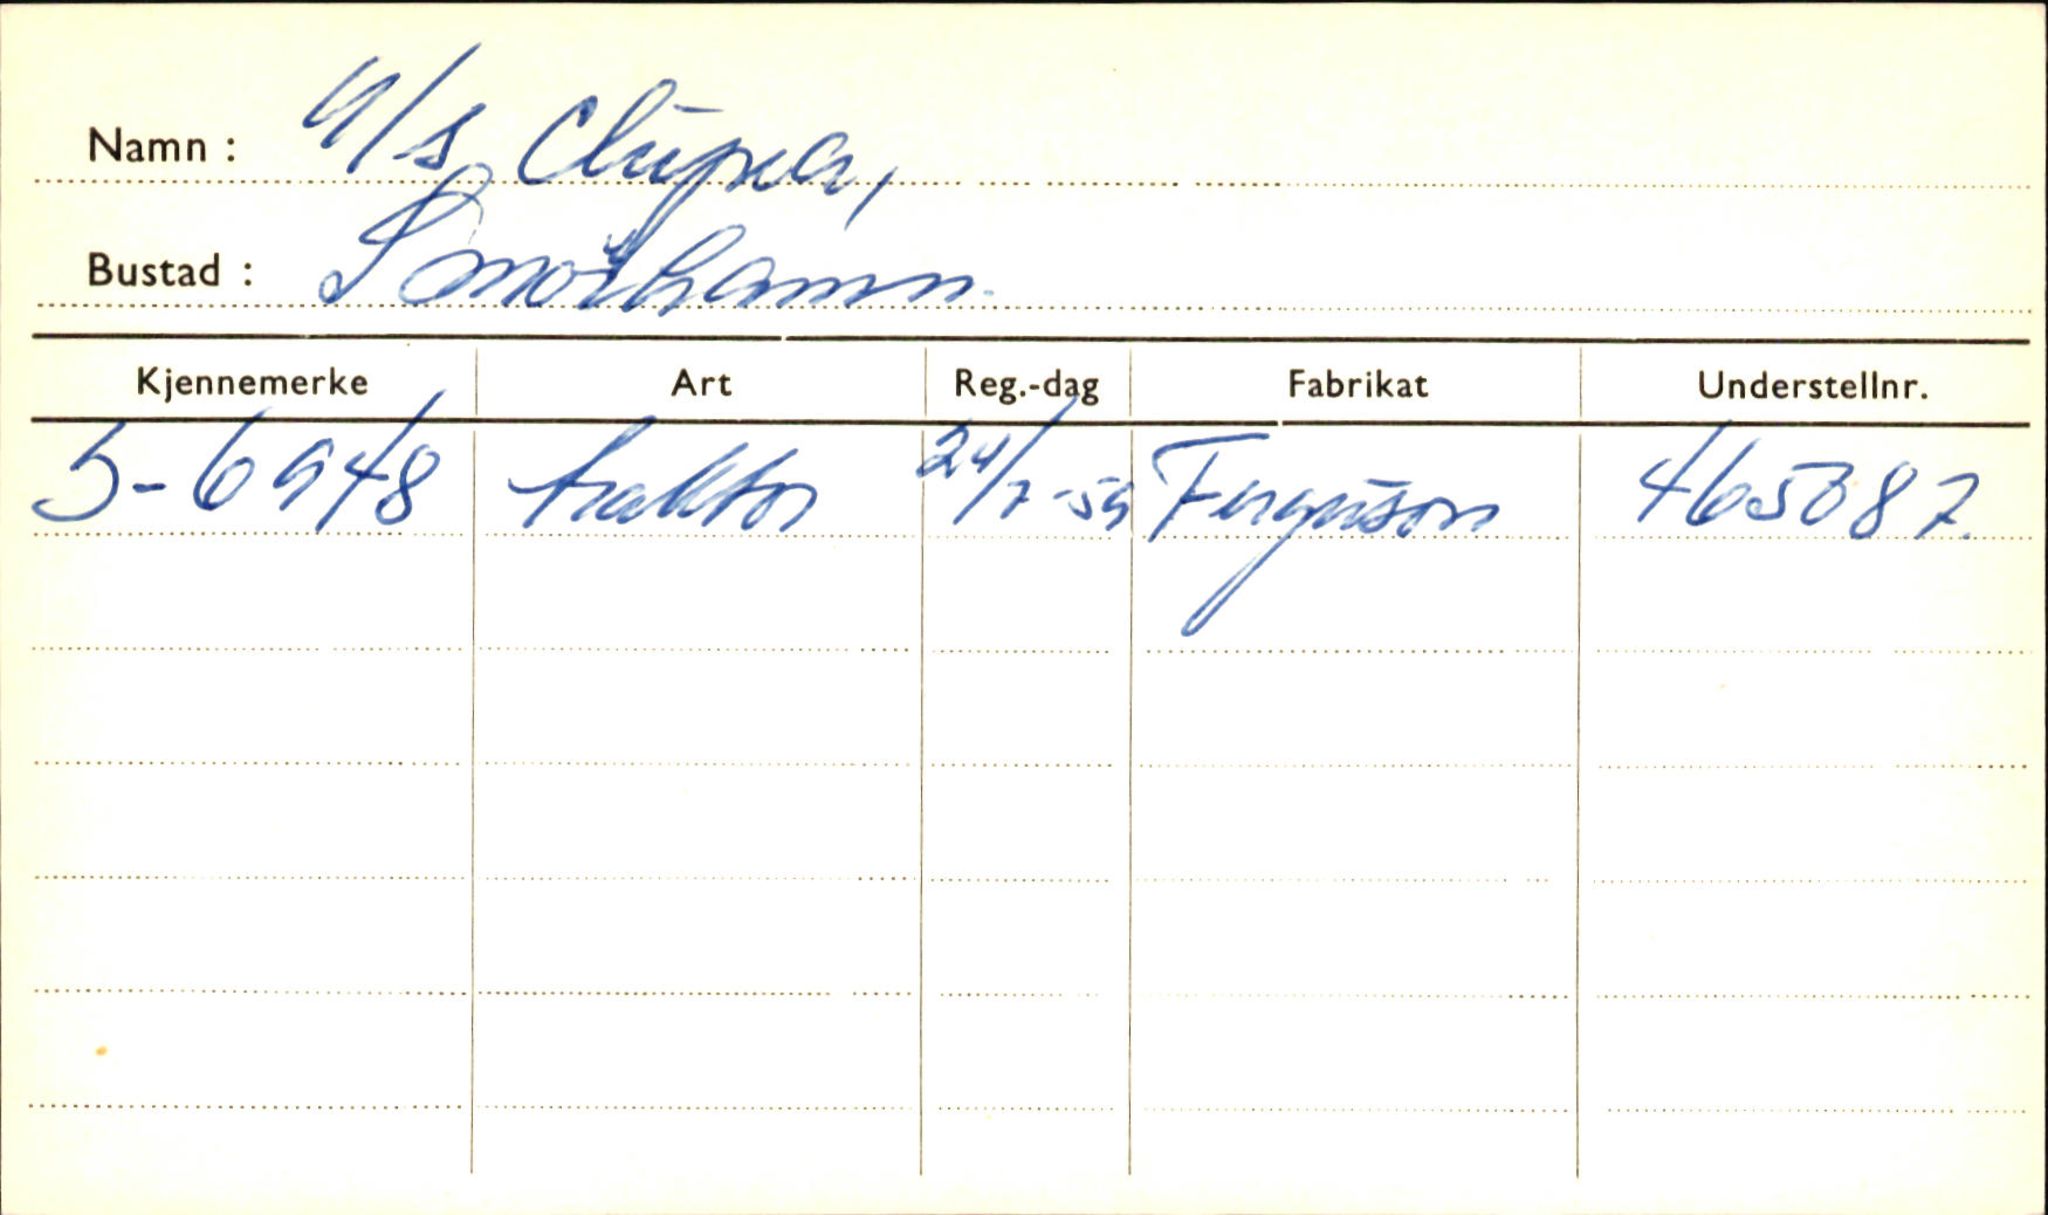 Namn : A/s Clupea,
Bustad : Smørhamn.
Kjennemerke Art Reg.-dag Fabrikat Understellnr.
S-6948 traktor 24/7-59 Ferguson 465387.